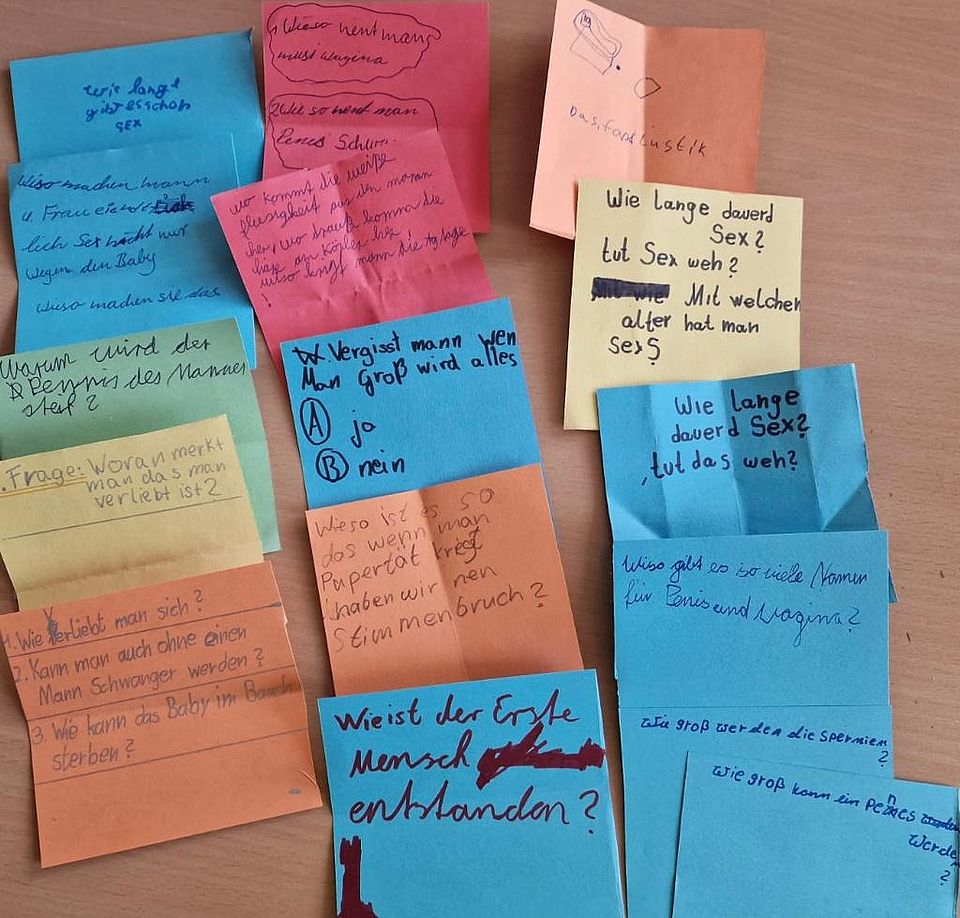 Wie lange
gibt es schon
sex
Wiso machen mann
u. Frau
lich Sex nicht nur
wegen den Baby
Wieso machen sie das
Warum wird der
Pennis des Mannes
steif?
Frage: Woran merkt
man das man
verliebt ist?
1. Wie Verliebt man sich?
2. Kann man auch ohne einen
Mann Schwanger werden?
3. Wie kann das Baby im Bauch
sterben?
1. Wieso nent man
vagina
2. Wie so nent man
Penes
wo kommt die weiße
flüsigkeit aus den mann
her, wo drauß komma die
hare am Körper her!
wiso fengt mann die tag sage
!
Vergisst mann wen
Man Groß wird alles
A ja
B nein
Wieso ist es so
das wenn man
Pupertät kregt
haben wir nen
Stimmenbruch?
Wie ist der Erste
Mensch
entstanden?
Das ist
Wie lange dauerd
Sex?
tut Sex weh?
Mit wie Mit welchen
alter hat man
Sex?
Wie lange
dauerd Sex?
tut das weh?
Wiso gibt es so viele Namen
für Penis und Vagina?
Wie groß werden die Spermien
?
Wie groß kann ein Penes
werden
?